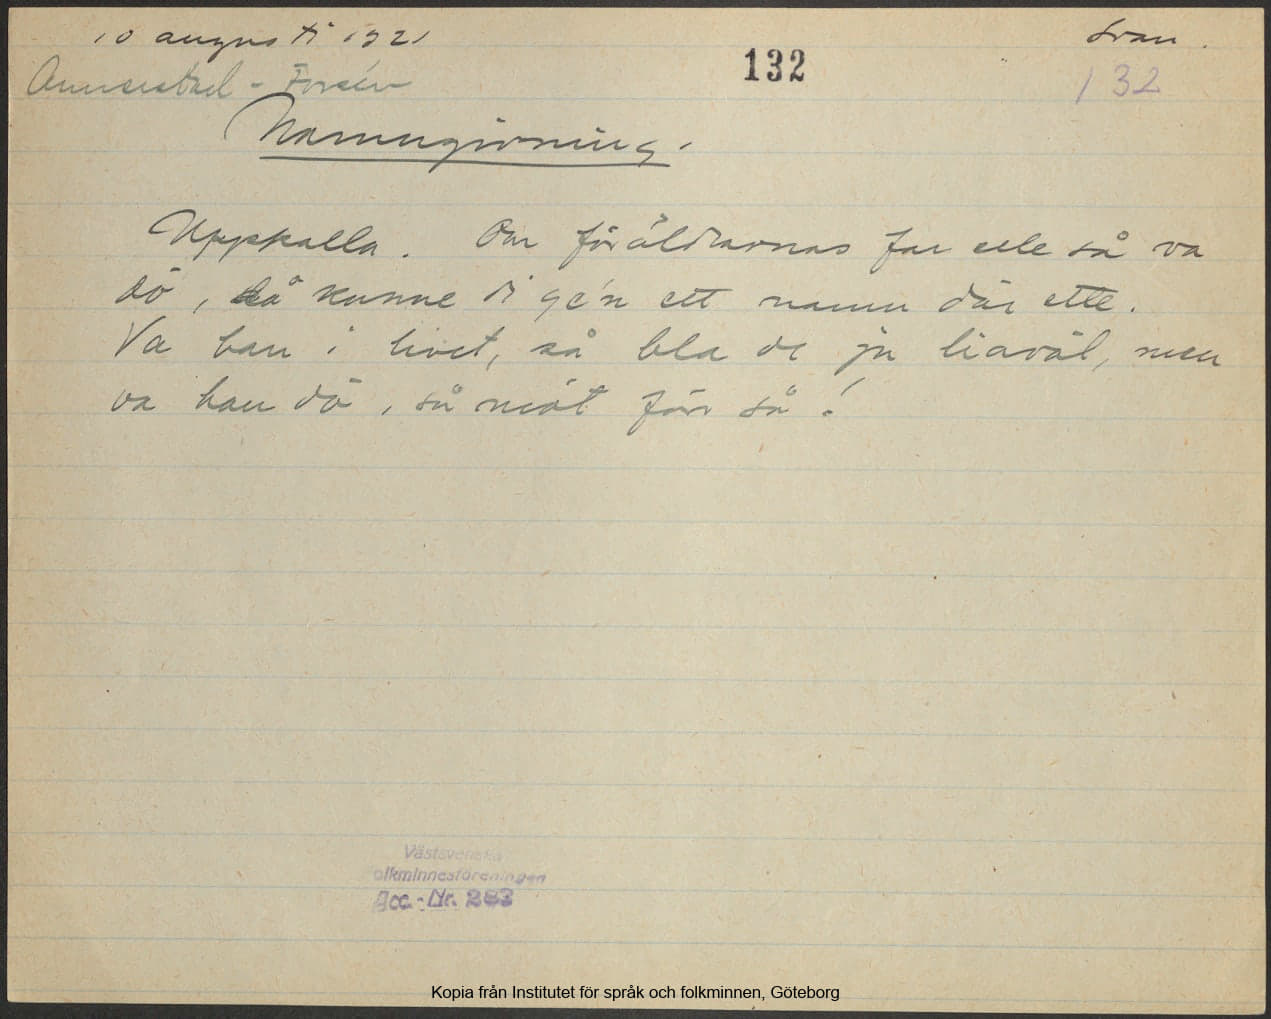 10 augusti 1921
Svan.
Annerstad - Forsén
132
132
Namngivning.
Uppkalla. Om föräldrarnas far elle så va
dö, så kunne di ge'n ett namn där ette.
Va han i livet, så bla de ju liaväl, men
va han dö, så möt förr så!
Västsvenska
Folkminnesföreningen
Acc.-Nr. 283
Kopia från Institutet för språk och folkminnen, Göteborg